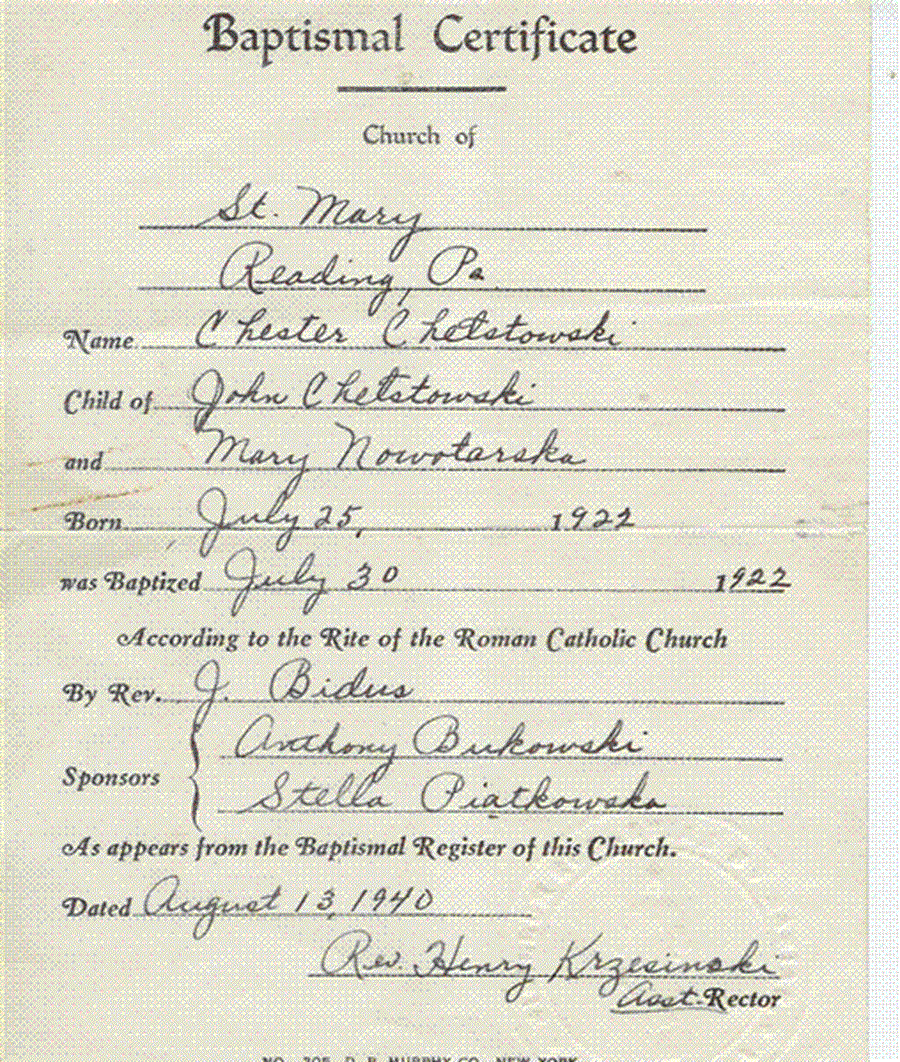 Baptismal Certificate
Church of
St. Mary
Reading, Pa
Name Chester Chelstowski
Child of John Chelstowski
and Mary Nowotarska
Born July 25, 1922
was Baptized July 30 1922
According to the Rite of the Roman Catholic Church
By Rev. J. Bidus
Sponsors { Anthony Bukowski
Stella Piatkowska
As appears from the Baptismal Register of this Church.
Dated August 13, 1940
Rev. Henry Krzesinski
Asst. Rector
NO. 205 D. P. MURPHY CO., NEW YORK